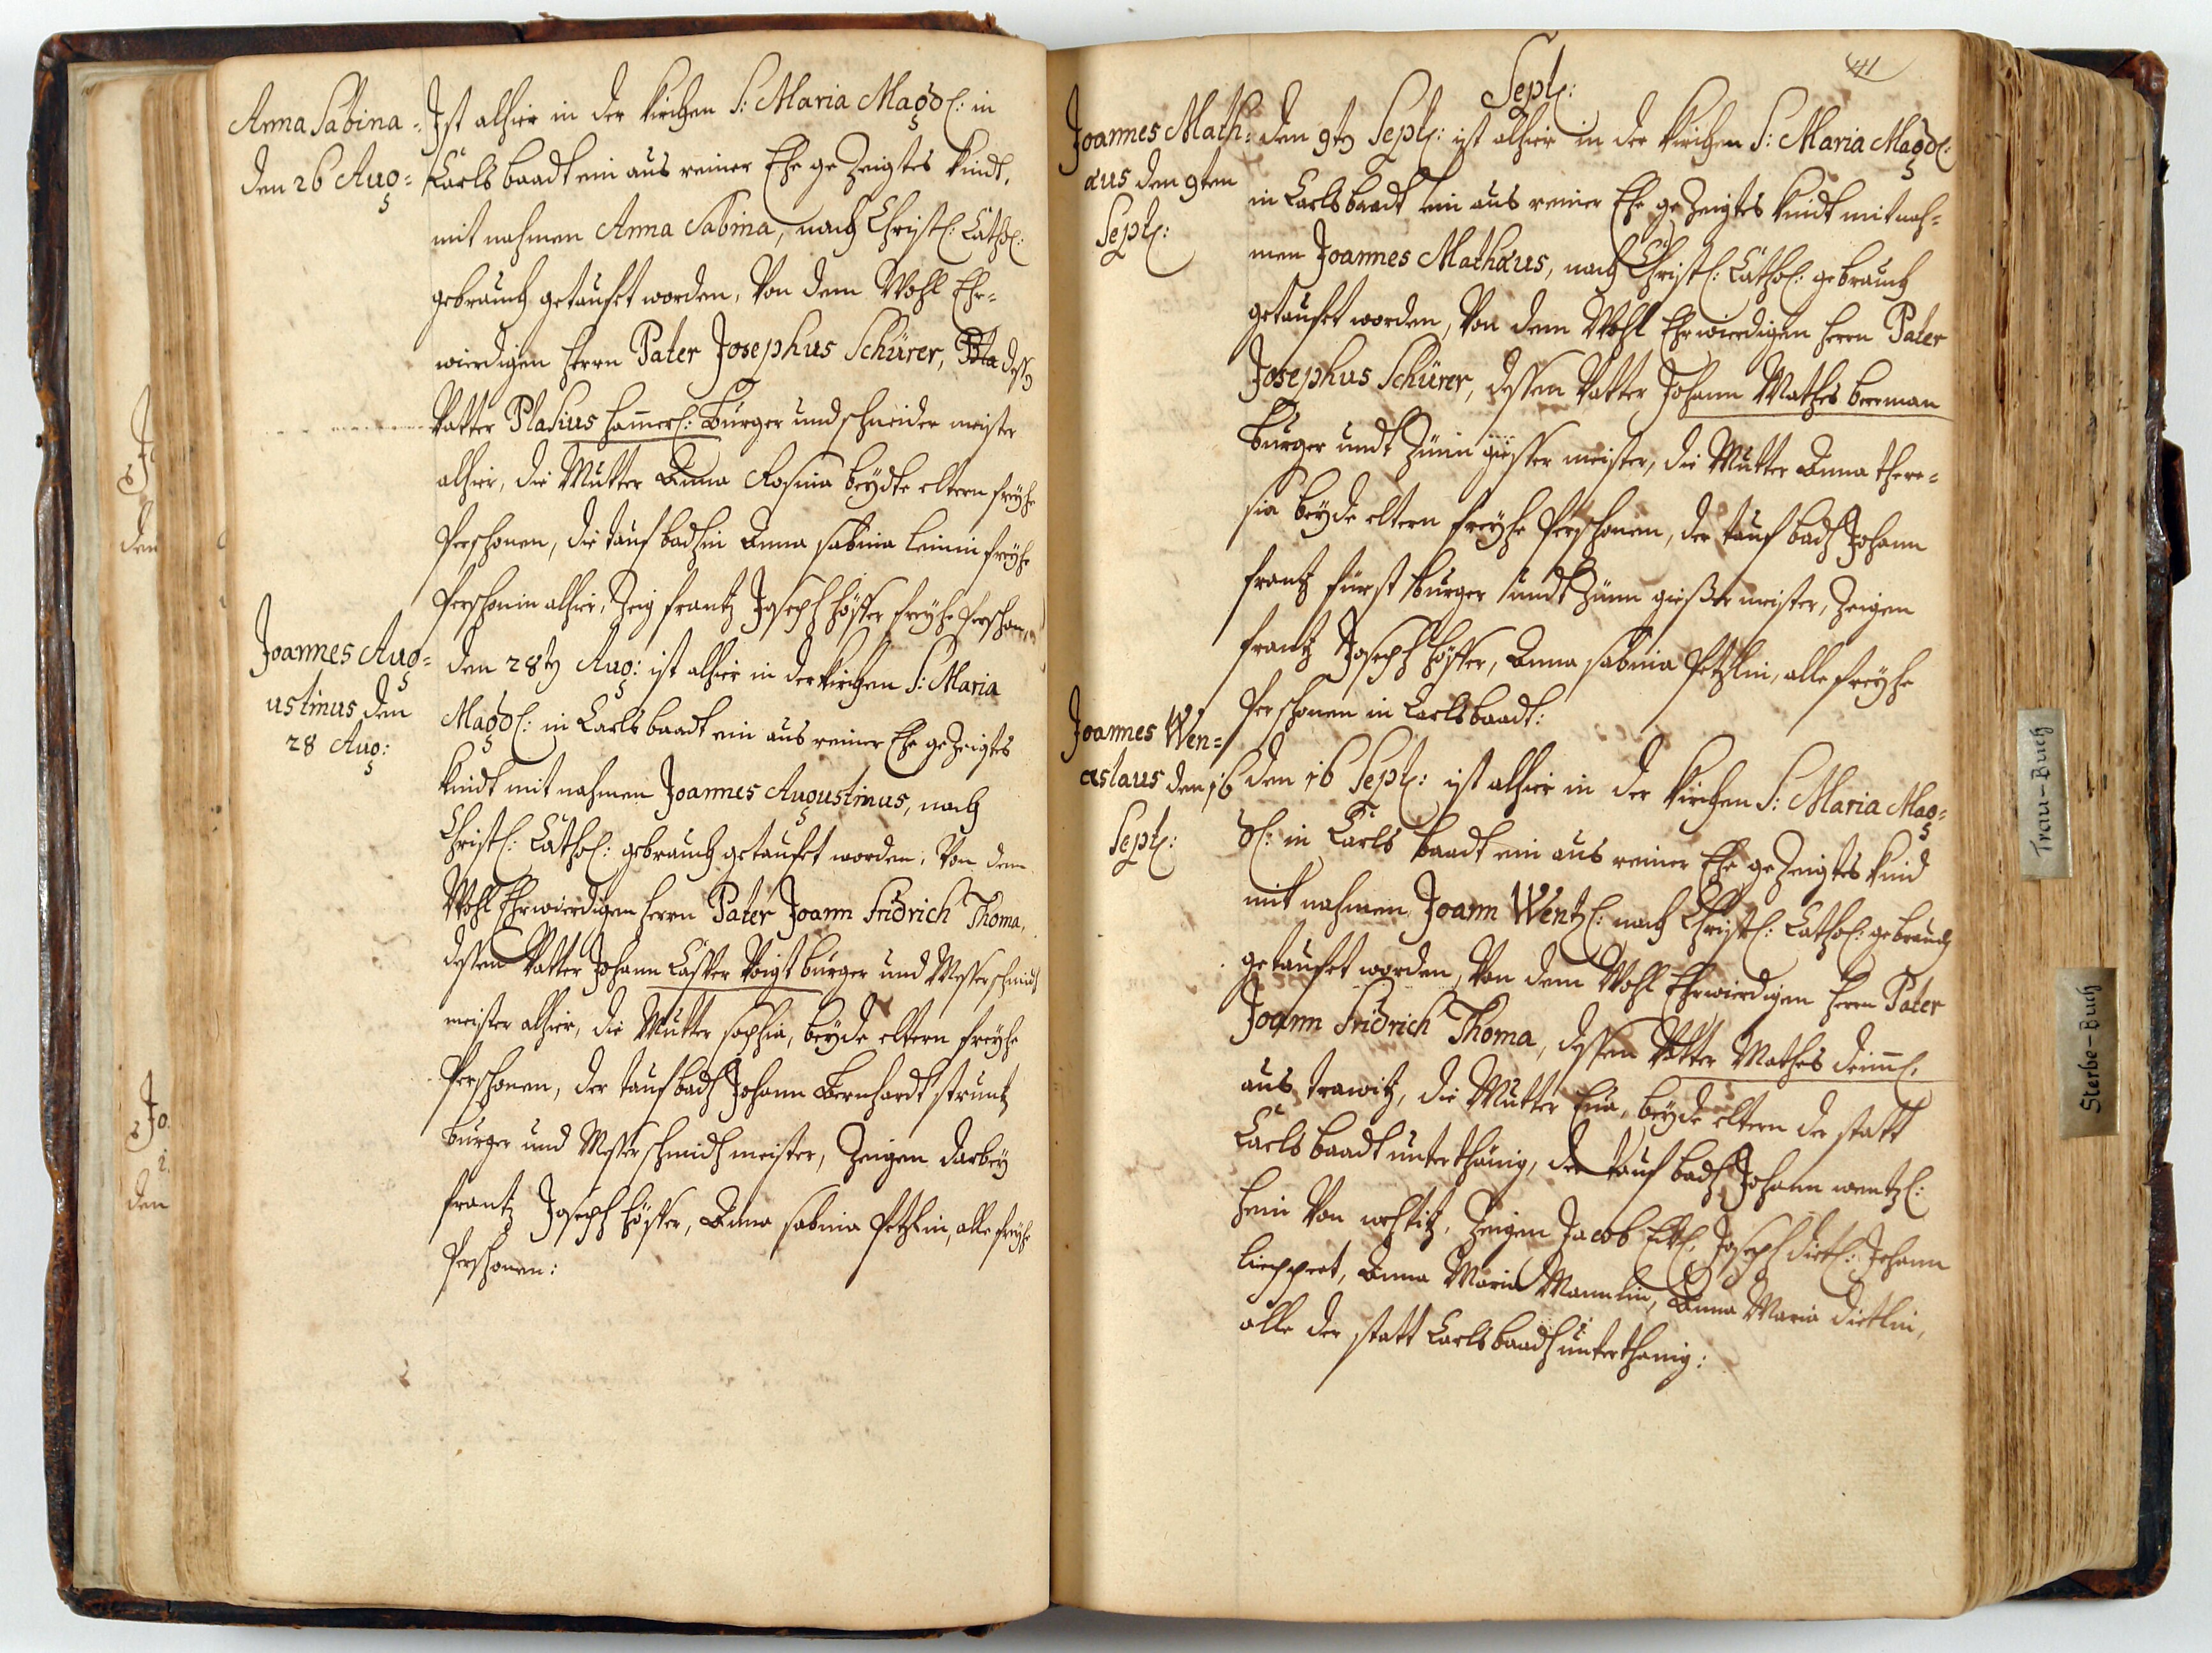 Anna Sabina
den 26 Aug:
Ist alhier in der Kirchen S: Maria Magdl: in
Carlsbaadt ein aus reiner Ehe gezeigtes Kindt,
mit nahmen Anna Sabina, nach Christl: Cathol:
gebrauch getauft worden, Von dem Wohl Ehr=
wierdigen Herrn Pater Josephus Schürer,
Vatter Plasius Hamerl: Burger und schneider meister
alhier, die Mutter Anna Rosina beydte eltern freyhe
Perschonen, die taufbadhin Anna Sabina freyhe
Perschonin alhier, Zeig frantz Joseph Höffer freyhe Perschon
Joannes Aug=
ustinus den
28 Aug:
den 28ty Aug: ist alhier in der Kirchen S: Maria
Magdl: in Carlsbaadt ein aus reiner Ehe gezeigtes
Kindt mit nahmen Joannes Augustinus, nach
Christl: Cathol: gebrauch getauft worden, Von dem
Wohl Ehrwierdigen Herrn Pater Joann Fridrich Thoma,
dessen Vatter Johann Casper Voigt burger und Messerschmidt
meister alhier, die Mutter Sophia, beyde eltern freyhe
Perschonen, der taufbadh Johann Bernhardt Struntz
burger und Messerschmidh meister, Zeigen darbey
frantz Joseph Höffer, Anna Sabina Petzlin, alle freyhe
Perschonen:
41
Sept:
Joannes Math=
æus den 9ten
Sept:
den 9ty Sept: ist alhier in der Kirchen S: Maria Magdl:
in Carlsbaadt ein aus reiner Ehe gezeigtes Kindt mit nah=
men Joannes Mathæus, nach Christl: Cathol: gebrauch
getauft worden, Von dem Wohl Ehrwierdigen Herrn Pater
Josephus Schürer, dessen Vatter Johann Mathes beerman
Burger undt Zünn giesser meister, die Mutter Anna there=
sia beyde eltern freyhe Perschonen, der taufbadh Johann
frantz fürst burger undt Zünn giesser meister, Zeigen
frantz Joseph Höffer, Anna Sabina Petzlin, alle freyhe
Perschonen in Carlsbaadt:
Joannes Wen=
ceslaus den 16
Sept:
den 16 Sept: ist alhier in der Kirchen S: Maria Mag=
dl: in Carlsbaadt ein aus reiner Ehe gezeigtes Kind
mit nahmen Joann Wentzl: nach Christl: Cathol: gebrauch
getauft worden, Von dem Wohl Ehrwierdigen Herrn Pater
Joann Fridrich Thoma, dessen Vatter Mathes
aus trawitz, die Mutter Eua, beyde eltern der statt
Carlsbaadt unterthänig, der taufbadh Johann wentzl:
Hein Von Zeigen Jacob Joseph dietl: Johann
lieppert, Anna Maria Mannlin, Anna Maria dietlin,
alle der statt Carlsbaadh unterthanig:
Trau-Buch
Sterbe-Buch